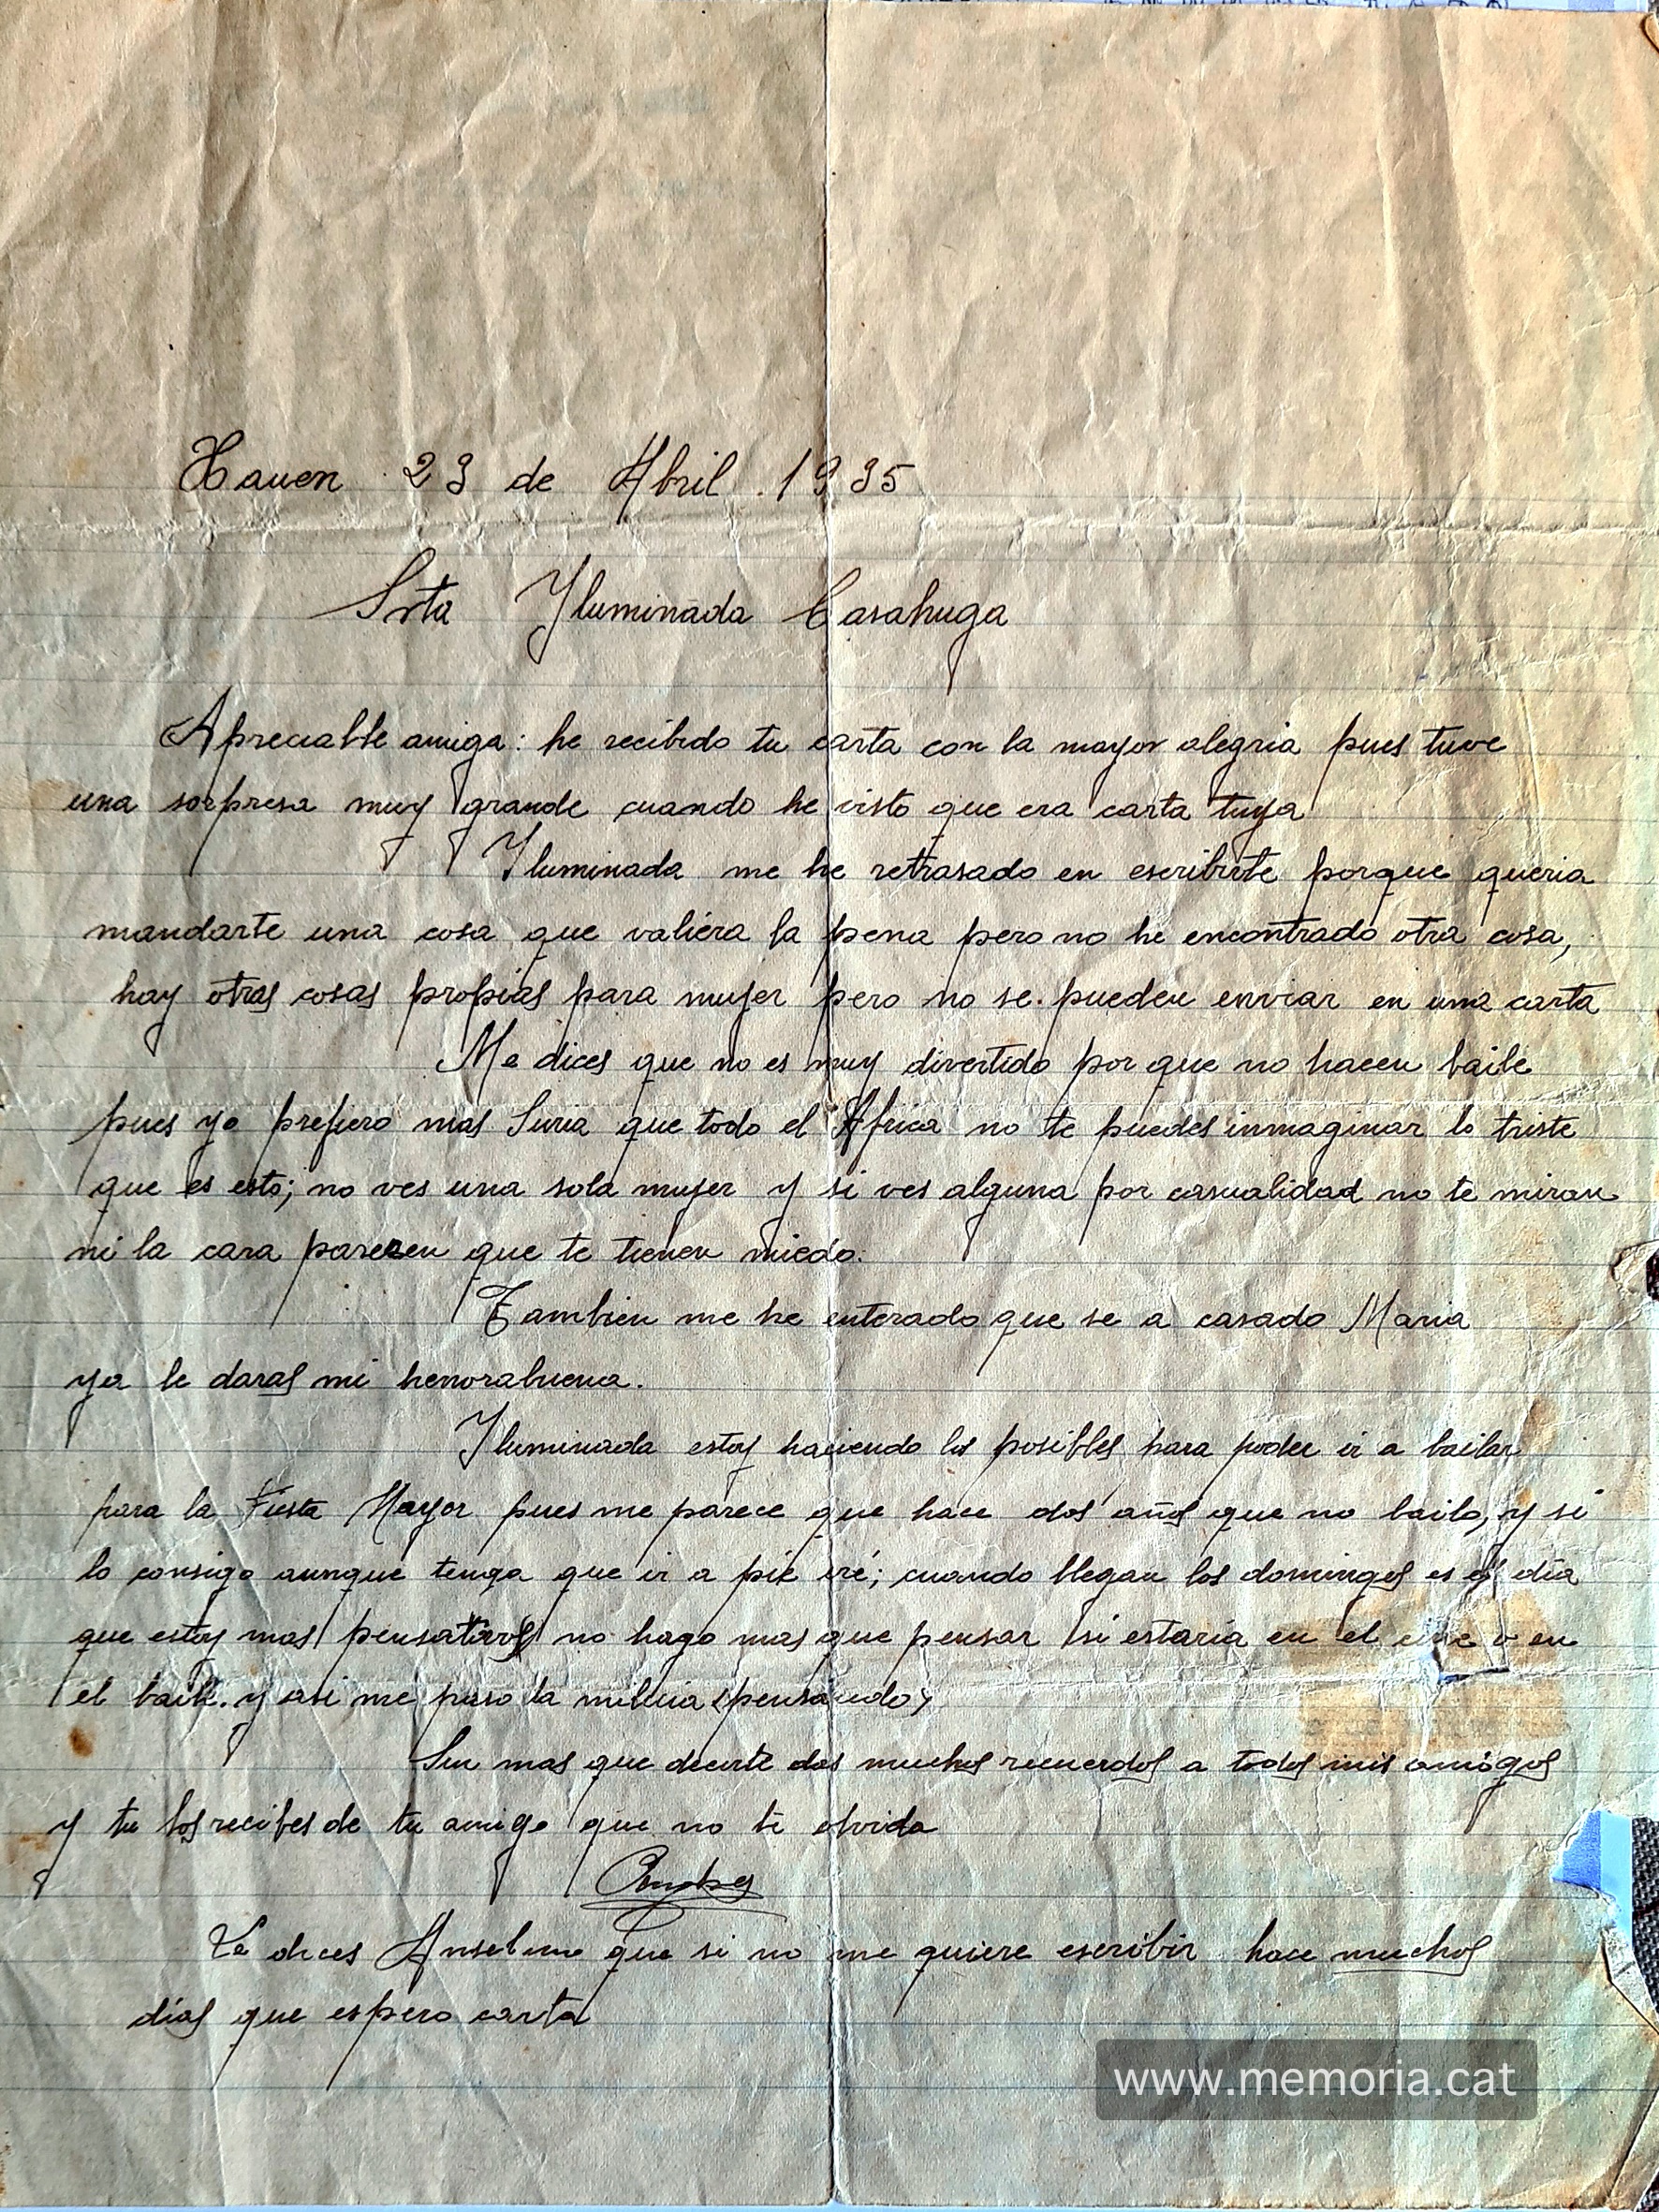 Xauen 23 de Abril . 1935
Srta Yluminada Casahuga
Apreciable amiga: he recibido tu carta con la mayor alegria pues tuve
una sorpresa muy grande cuando he visto que era carta tuya
Yluminada me he retrasado en escribirte porque queria
mandarte una cosa que valiera la pena pero no he encontrado otra cosa,
hay otras cosas propias para mujer pero no se pueden enviar en una carta
Me dices que no es muy divertido por que no hacen baile
pues yo prefiero mas Suria que todo el Africa no te puedes inmaginar lo triste
que es esto; no ves una sola mujer y si ves alguna por casualidad no te miran
ni la cara parecen que te tienen miedo.
Tambien me he enterado que se a casado Maria
ya le daras mi henorabuena.
Yluminada estoy haciendo los posibles para poder ir a bailar
para la Fiesta Mayor pues me parece que hace dos años que no bailo, y si
lo consigo aunque tenga que ir a pie iré; cuando llegan los domingos es el dia
que estoy mas no hago mas que pensar si estaria en el cine o en
el baile. y asi me paso la milicia (pensando)
Sin mas que decirte das muchos recuerdos a todos mis amigos
y tu los recibes de tu amigo que no te olvida
Le dices Anselmo que si no me quiere escribir hace muchos
dias que espero carta
www.memoria.cat